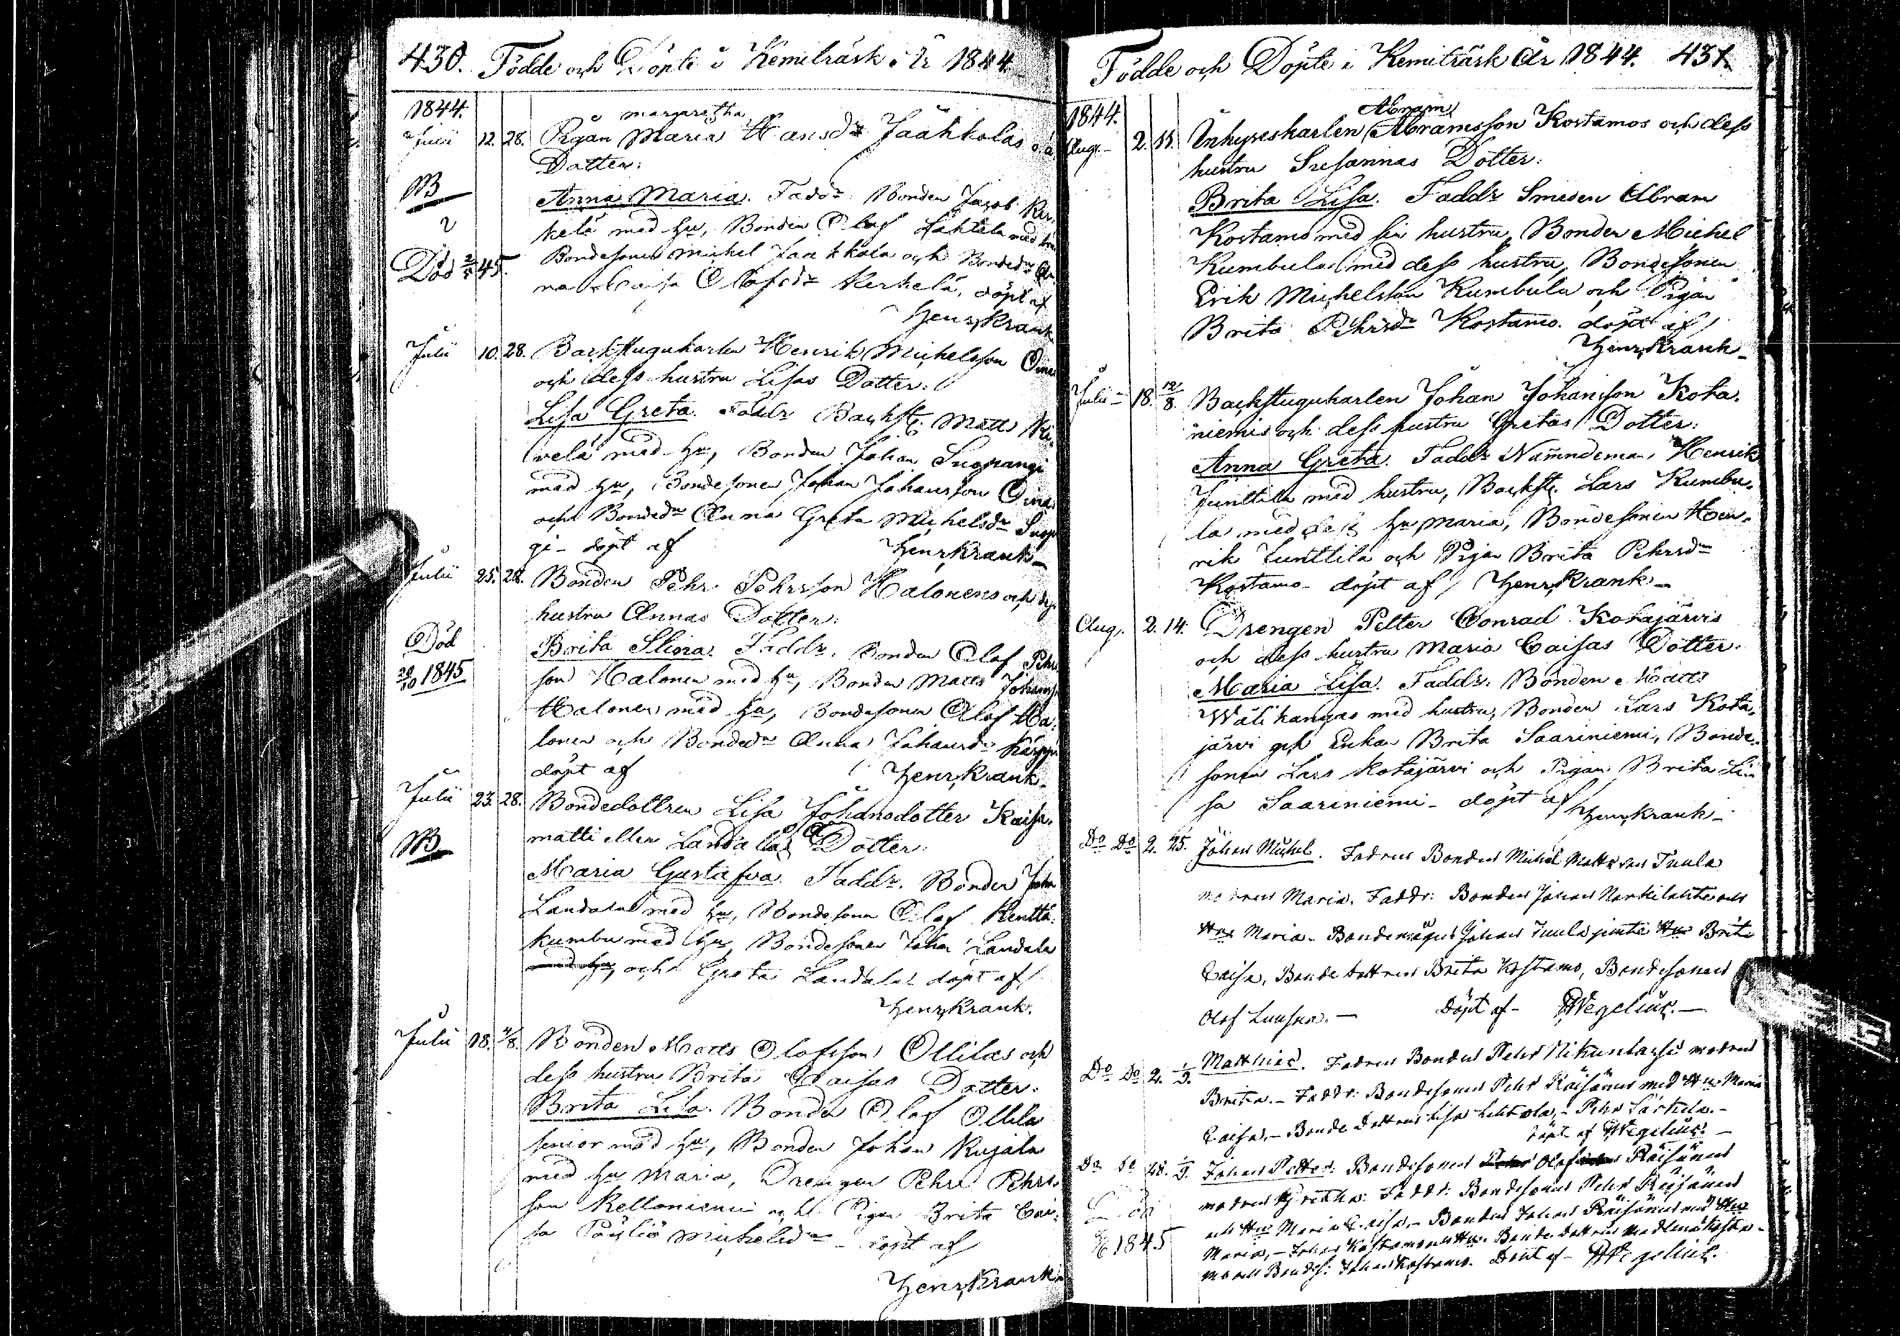 430. Födde och Döpte i Kemiträsk År 1844.
1844.
margaretha
Julii 12. 28. Pigan Maria Hansdr Jaahkolas o.ä.
Dotter:
NB Anna Maria. Faddr Bonden Jacob Ker-
kelä med hu, Bonden Olof Lahtela med hu
Död 45. Bondesonen Michel Jaahkola och Bondedr An-
na Caisa Olofsdr Kerkelä, döpt af
Henr. Krank
Julii 10. 28. Backstugukarlen Henrik Michelsson
och dess hustru Lisas Dotter:
Lisa Greta. Faddr Backst. Matts
velä med hu, Bonden Johan Suopangi
med hu, Bondesonen Johan Johansson
och Bondedr Anna Greta Michelsdr Suop
gi - döpt af Henr. Krank
Julii 25. 28. Bonden Pehr Pehrsson Halonens och dess
hustru Annas Dotter:
Död Brita Stina. Faddr. Bonden Olof Pehr
1845 son Halonen med hu, Bonden Matts Johans
Halonen med hu, Bondesonen Olof Ha-
lonen och Bondedr Anna Johansdr
döpt af Henr. Krank.
Julii 23. 28. Bondedottren Lisa Johansdotter
matti eller Landalas Dotter:
NB Maria Gustafva. Faddr. Bonden Joha
Landala med hu, Bondesonen Olof Kenttä-
kumbu med hu, Bondesonen Johan Landala
med hu, och Greta Landala döpt af
Henr. Krank.
Julii 18. 4/8. Bonden Matts Olofsson Ollilas och
dess hustru Brita Caisas Dotter:
Brita Lisa. Bonden Olof Ollila
senior med hu, Bonden Johan Kujala
med hu Maria, Drengen Pehr Pehrs-
son Kelloniemi och Pigan Brita Cai-
sa Pöyliö Michelsdr - döpt af
Henr. Krank
Födde och Döpte i Kemiträsk År 1844. 431.
1844. Abram
Aug. 2. 11. Inhyseskarlen Abramsson Kostamos och dess
hustru Susannas Dotter:
Brita Lisa. Faddr Smeden Abram
Kostamo med sin hustru, Bonden Michel
Kumbula med dess hustru, Bondesonen
Erik Michelsson Kumbula och Pigan
Brita Pehrsdr Kostamo. döpt af
Henr. Krank
Julii 18. 12/8. Backstugukarlen Johan Johansson Kota-
niemis och dess hustru Gretas Dotter:
Anna Greta. Faddr Nämndeman Henrik
Junttila med hustru, Backst. Lars Kumbu-
la med dess hu Maria, Bondesonen Hen-
rik Junttila och Pigan Brita Pehrsdr
Kostamo - döpt af Henr. Krank
Aug. 2. 14. Drengen Petter Conrad Kotajärvis
och dess hustru Maria Caisas Dotter.
Maria Lisa. Faddr. Bonden Matts
Wälihangas med hustru, Bonden Lars Kota-
järvi och Enkan Brita Saariniemi, Bonde-
sonen Lars Kotajärvi och Pigan Brita Li-
sa Saariniemi - döpt af Henr. Krank
Do Do 2. 25. Johan Michel. Fadren Bonden Michel Mattsson Tuula
modren Maria. Faddr: Bonden Johan Narkilahti och
Hu Maria - Bondemågen Johan Tuula jemte Hu Brita
Caisa, Bonde dottren Brita Kostamo, Bondesonen
Olof Luusua. - Döpt af - Wegelius. -
Do Do 2. 1/9. Matthias. Fadren Bonden Pehr modren
Brita. - Faddr: Bondesonen Pehr Räisänen med Hu Maria
Caisa, - Bonde Dottren Lisa - Pehr Särkela. -
Döpt af Wegelius. -
Do Do 28. 1/9. Johan Petter. Bondesonen Olof Räisänen
modren Faddr: Bondesonen Pehr Räisänen
Död och Hu Maria Caisa, - Bonden Johan Räisänen med Hu
1845 Maria, - Johan Kostamo och Hu. Bonde dottren
Bondes: Johan Kostamo. Döpt af - Wegelius.